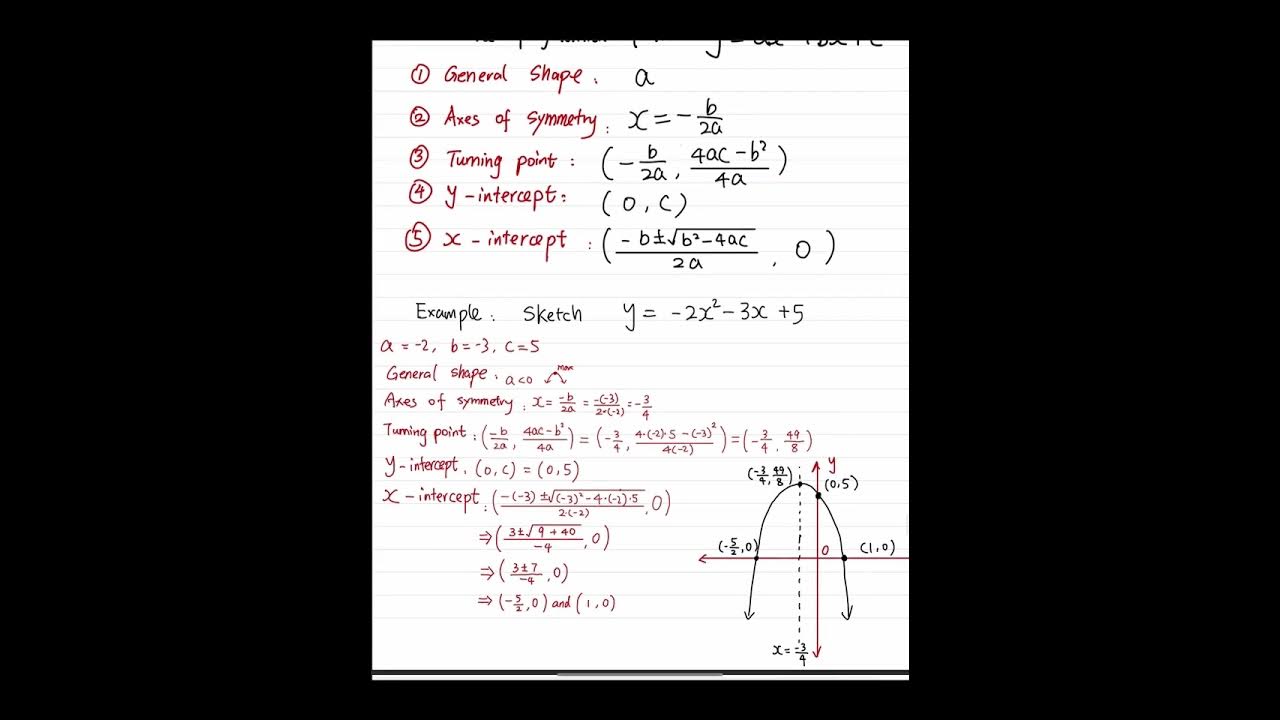 y = ax² + bx + c
① General Shape : a
② Axes of symmetry : x = -b/2a
③ Turning point : (-b/2a, (4ac-b²)/4a)
④ y-intercept : (0, c)
⑤ x-intercept : ((-b±√(b²-4ac))/2a, 0)
Example : Sketch y = -2x² - 3x + 5
a = -2, b = -3, c = 5
General shape : a<0 max
Axes of symmetry : x = -b/2a = -(-3)/2·(-2) = -3/4
Turning point : (-b/2a, (4ac-b²)/4a) = (-3/4, (4·(-2)·5-(-3)²)/4(-2)) = (-3/4, 49/8)
Y-intercept : (0, c) = (0, 5)
x-intercept : ((-(-3)±√((-3)²-4·(-2)·5))/2·(-2), 0)
⇒ ((3±√(9+40))/-4, 0)
⇒ ((3±7)/-4, 0)
⇒ (-5/2, 0) and (1, 0)
y
(-3/4, 49/8)
(0,5)
(-5/2, 0)
0
(1,0)
x = -3/4